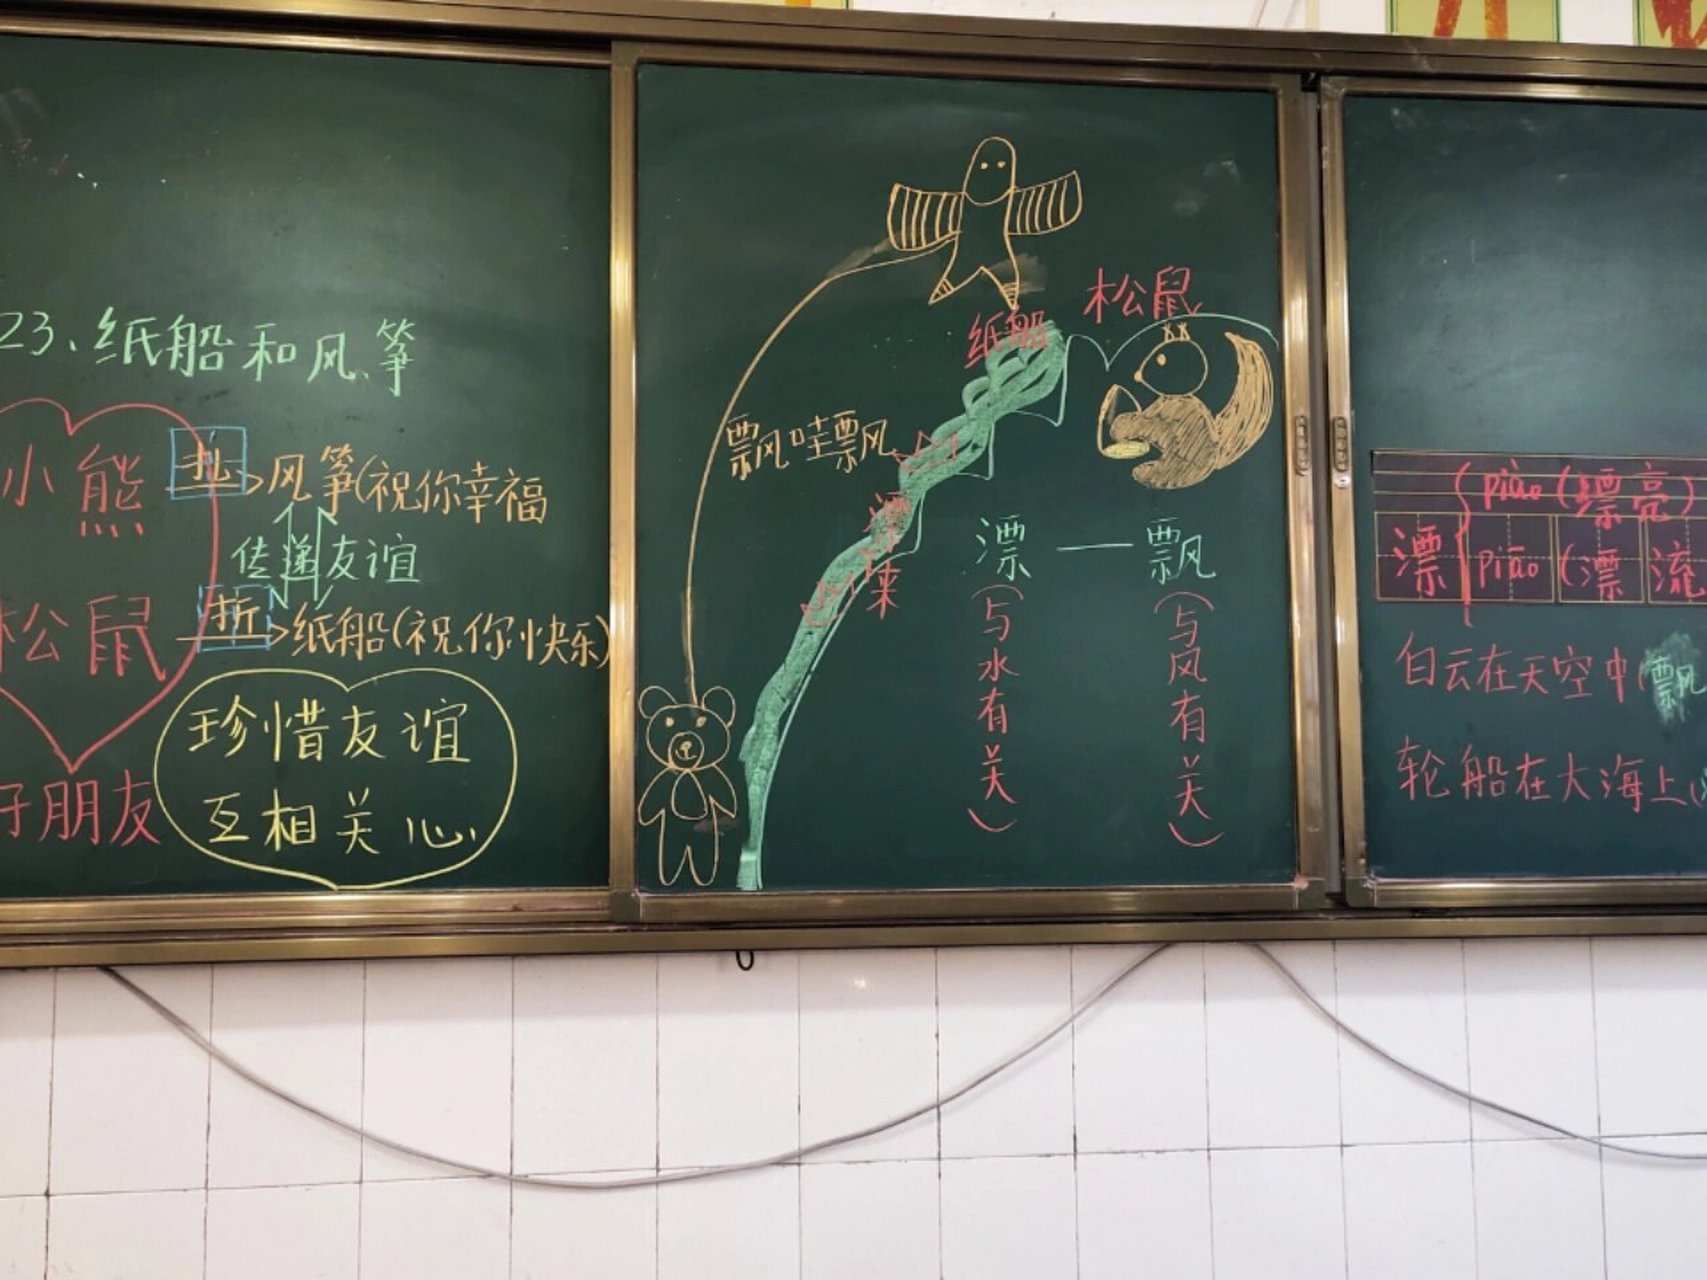 23、纸船和风筝
小熊 扎 风筝(祝你幸福
传递友谊
松鼠 折 纸船(祝你快乐)
好朋友
珍惜友谊
互相关心
松鼠
纸船
飘哇飘
漂 — 飘
(与水有关)
(与风有关)
漂 { piào (漂亮)
piāo (漂流
白云在天空中(飘
轮船在大海上(